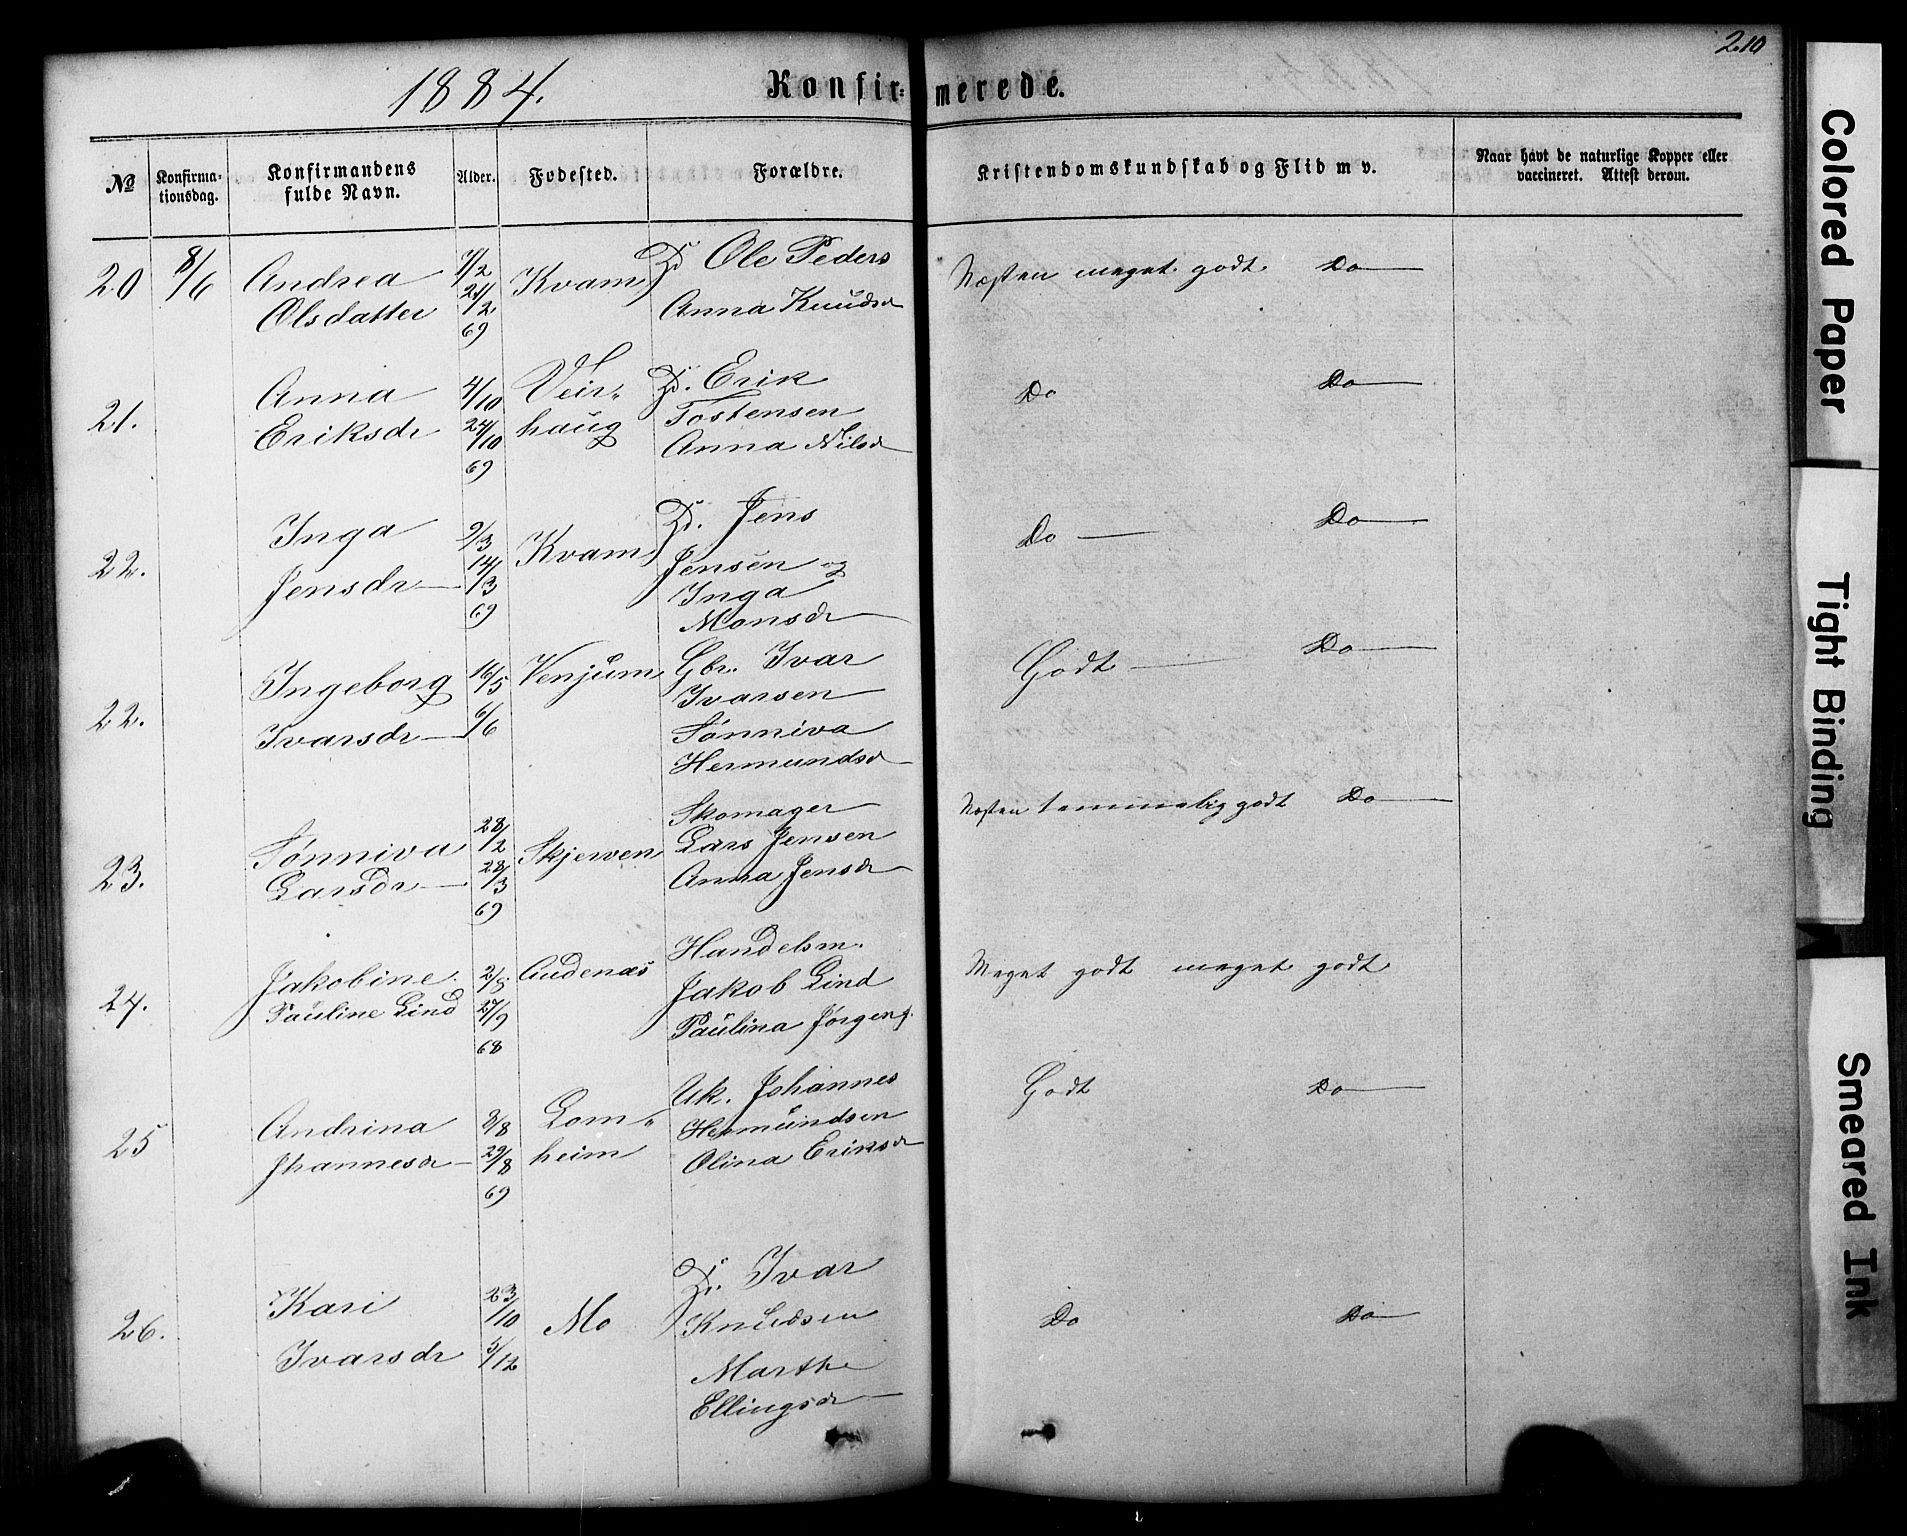 210
1884.
Konfirmerede.
No
Konfirmationsdag.
Konfirmandens fulde Navn.
Alder.
Fødested.
Forældre.
Kristendomskundskab og Flid m v.
Naar havt de naturlige Kopper eller vaccineret. Attest derom.
20 8/6 Andrea 7/2 Kvam Ole Peders Næsten meget godt Do
Olsdatter 21/2 69 Anna Knudsd
21. Anna 4/10 Veir- Erik Do Do
Eriksdr 24/10 69 haug Tostensen
Anna Nilsd
22. Inga 2/3 Kvam Jens Do Do
Jensdr 14/3 69 Jensen og
Inga
Monsdr
22. Ingeborg 16/5 Venjum Gbr. Ivar Godt Do
Ivarsdr 6/6 Ivarsen
Sønniva
Hermundsd
23. Sønniva 28/2 Skjerven Skomager Næsten temmelig godt Do
Larsdr 28/3 69 Lars Jensen
Anna Jensdr
24. Jakobine 2/8 Gudenæs Handelsm. Meget godt meget godt
Pauline Lind 27/9 68 Jakob Lind
Paulina Jørgens.
25 Andrina 8/8 Lom- Uk. Johannes Godt Do
Jhannesdr 29/8 69 heim Hermundsen
Olina Eriksdr
26. Kari 23/10 Mo Ivar Do Do
Ivarsdr 5/12 Knudsen
Marthe
Ellingsdr
Colored Paper
Tight Binding
Smeared Ink